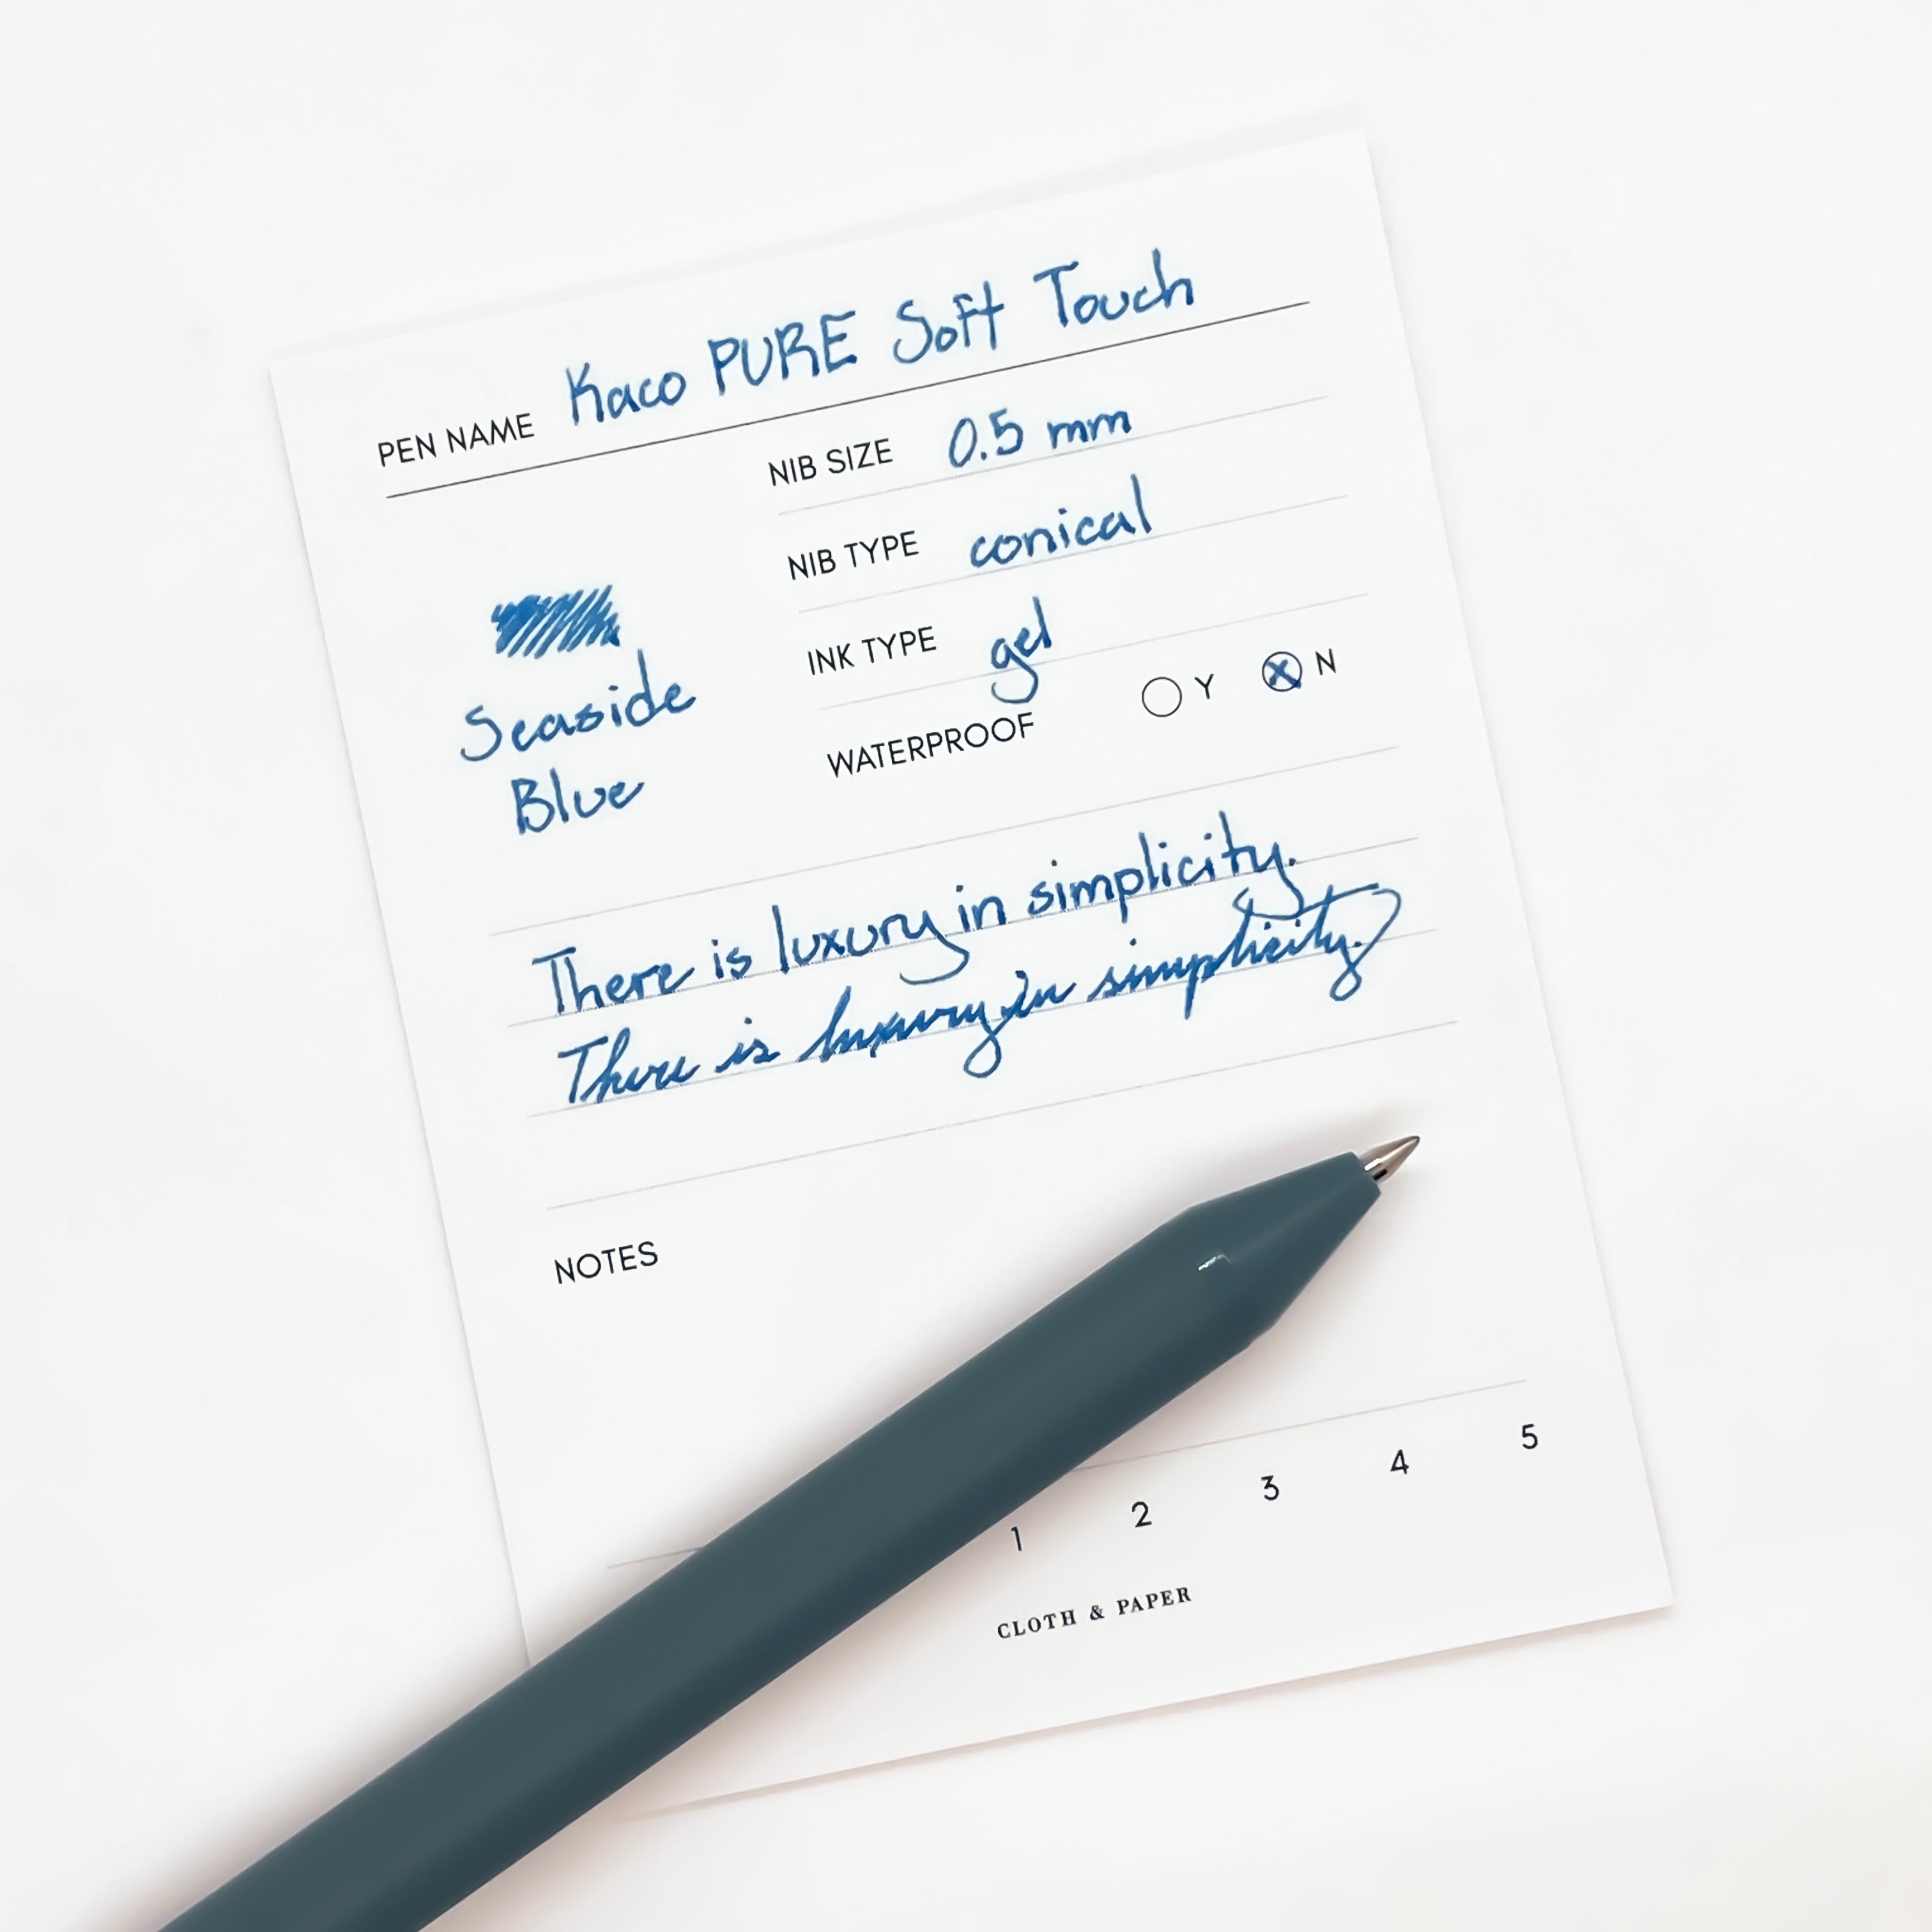 PEN NAME Kaco PURE Soft Touch
NIB SIZE 0.5 mm
NIB TYPE conical
INK TYPE gel
WATERPROOF Y N
Seaside
Blue
There is luxury in simplicity.
There is luxury in simplicity.
NOTES
1 2 3 4 5
CLOTH & PAPER